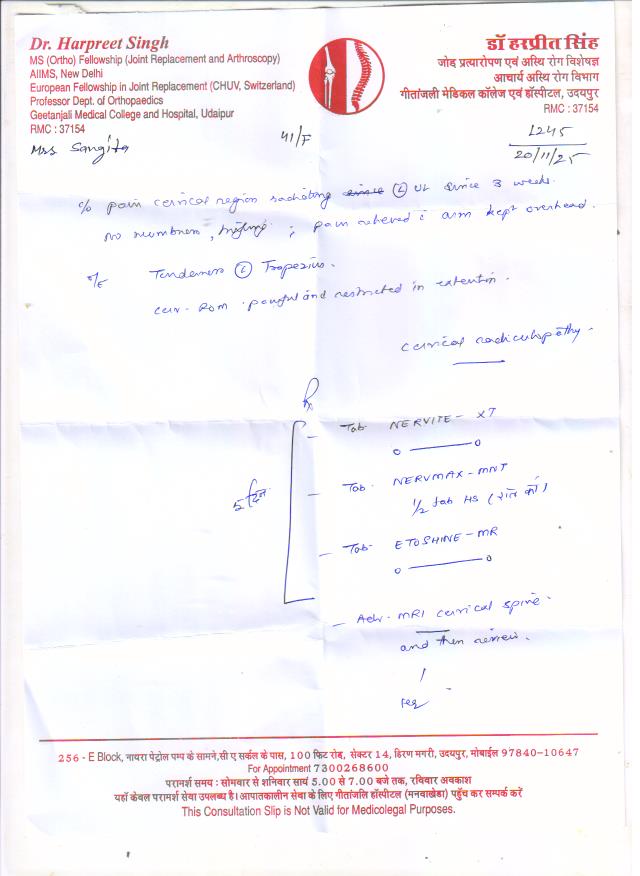 Dr. Harpreet Singh
MS (Ortho) Fellowship (Joint Replacement and Arthroscopy)
AIIMS, New Delhi
European Fellowship in Joint Replacement (CHUV, Switzerland)
Professor Dept. of Orthopaedics
Geetanjali Medical College and Hospital, Udaipur
RMC : 37154
डॉ हरप्रीत सिंह
जोड प्रत्यारोपण एवं अस्थि रोग विशेषज्ञ
आचार्य अस्थि रोग विभाग
गीतांजली मेडिकल कॉलेज एवं हॉस्पीटल, उदयपुर
RMC : 37154
Mrs Sangita
41/F
1245
20/11/25
c/o pain cervical region radiating (L) UL since 3 weeks.
No numbness, ; pain relieved c arm kept overhead.
o/E Tenderness (L) Trapezius.
cerv. ROM painful and restricted in extention.
cervical radiculopathy.
Rx
5 दिन
- Tab. NERVITE - XT
o ——— o
- Tab. NERVMAX - MNT
1/2 tab HS (रात को)
- Tab. ETOSHINE - MR
o ——— o
- Adv. MRI cervical spine.
and then review.
256 - E Block, नायरा पेट्रोल पम्प के सामने, सी ए सर्कल के पास, 100 फिट रोड, सेक्टर 14, हिरण मगरी, उदयपुर, मोबाईल 97840-10647
For Appointment 7300268600
परामर्श समय : सोमवार से शनिवार सायं 5.00 से 7.00 बजे तक, रविवार अवकाश
यहाँ केवल परामर्श सेवा उपलब्ध है। आपातकालीन सेवा के लिए गीतांजलि हॉस्पीटल (मनवाखेडा) पहुँच कर सम्पर्क करें
This Consultation Slip is Not Valid for Medicolegal Purposes.